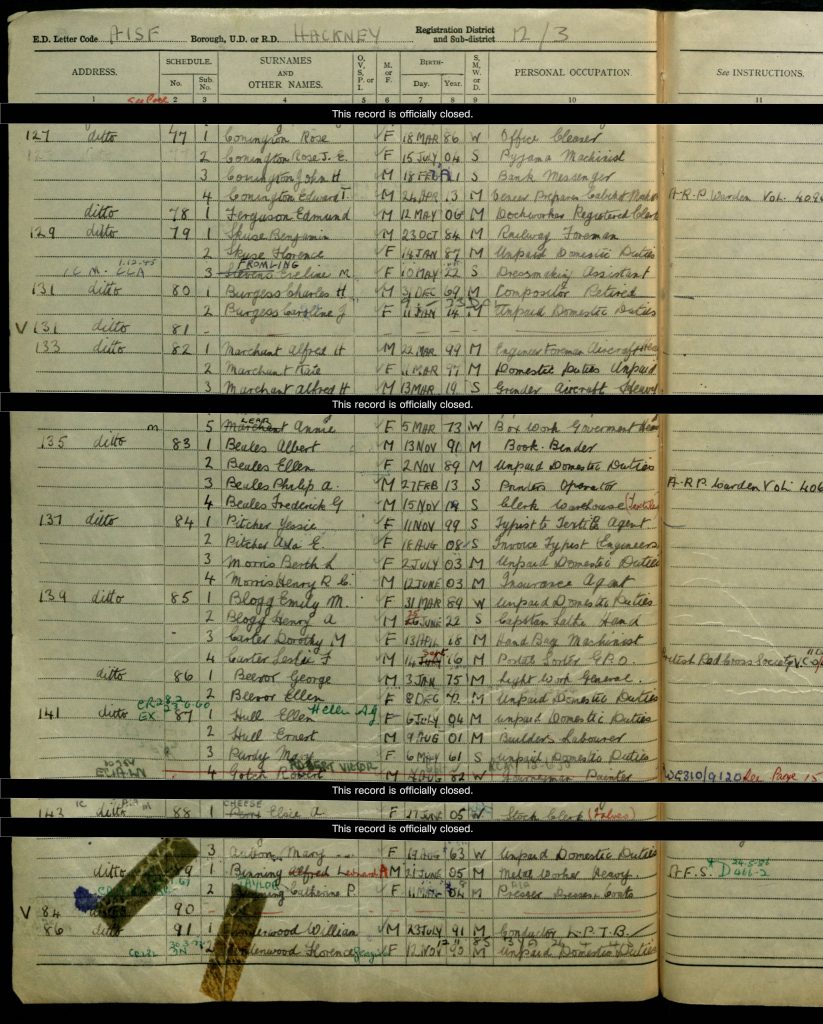 E.D. Letter Code AISF Borough, U.D. or R.D. HACKNEY Registration District and Sub-district 12/3
ADDRESS. SCHEDULE. No. Sub. No. SURNAMES AND OTHER NAMES. O, V, S, P, or I. M. or F. BIRTH- Day. Year. S, M, W, or D. PERSONAL OCCUPATION. See INSTRUCTIONS.
1 2 3 4 5 6 7 8 9 10 11
This record is officially closed.
127 ditto 77 1 Conington Rose F 18 MAR 86 W Office Cleaner
2 Conington Rose J. E. F 15 JULY 04 S Pyjama Machinist
3 Conington John H M 18 S Bank Messenger
4 Conington Edward T. M 24 APR 13 M A.R.P Warden Vol. 4096
ditto 78 1 Ferguson Edmund M 12 MAY 06 M Dockworker Registered Clerk
129 ditto 79 1 Skuse Benjamin M 23 OCT 84 M Railway Foreman
2 Skuse Florence F 14 JAN 87 M Unpaid Domestic Duties
FROMLING
3 Stevens Eveline M. F 10 MAY 22 S Dressmaking Assistant
131 ditto 80 1 Burgess Charles H M 31 DEC 69 M Compositor Retired
2 Burgess Caroline J F 11 JAN 74 M Unpaid Domestic Duties
V 131 ditto 81 -
133 ditto 82 1 Marchant Alfred H M 22 MAR 99 M Engineer Foreman Aircraft Heavy
2 Marchant Kate F 11 MAR 97 M Domestic Duties Unpaid
3 Marchant Alfred H M 13 MAR 19 S Grinder Aircraft Heavy
This record is officially closed.
m 5 Marchant Annie F 5 MAR 73 W Box Work Goverment
135 ditto 83 1 Beales Albert M 13 NOV 91 M Book-Binder
2 Beales Ellen F 2 NOV 89 M Unpaid Domestic Duties
3 Beales Philip A. M 27 FEB 13 S Printers Operator A.R.P Warden Vol. 406
4 Beales Frederick G M 15 NOV 19 S Clerk Warehouse (Textile
137 ditto 84 1 Pitcher Jessie F 11 NOV 99 S Typist to Textile Agent
2 Pitcher Ada E. F 18 AUG 08 S Invoice Typist Engineers
3 Morris Berth L F 2 JULY 03 M Unpaid Domestic Duties
4 Morris Henry R. C. M 12 JUNE 03 M Insurance Agent
139 ditto 85 1 Blogg Emily M. F 31 MAR 89 W Unpaid Domestic Duties
2 Blogg Henry A M 26 JUNE 22 S Capstan Lathe Hand
3 Carter Dorothy M F 13 APL 18 M Hand Bag Machinist
4 Carter Leslie F M 14 Sept 16 M Postal Sorter G.P.O. British Red Cross Society
ditto 86 1 Beevor George M 3 JAN 75 M Light Work General.
2 Beevor Ellen F 8 DEC M Unpaid Domestic Duties
141 ditto EX 87 1 Hull Ellen Helen A.J F 6 JULY 04 M Unpaid Domestic Duties
2 Hull Ernest M 9 AUG 01 M Builders Labourer
3 Purdy Mary F 6 MAY 61 S Unpaid Domestic Duties
ROBERT VICTOR
4 Gotch Robert M AUG 82 W Journeyman Painter DE310/9120 See Page 15
This record is officially closed.
CHEESE
143 ditto 88 1 Elsie A. F 27 JUNE 05 Stock Clerk (Valves)
This record is officially closed.
3 Mary F 19 AUG 63 W Unpaid Domestic Duties
ditto 89 1 Binning Alfred Leonard A M 21 JUNE 05 M Metal Worker Heavy. A.F.S. D466-2 24-5-56
TAYLOR
2 Binning Catherine P. F 11 M Presser Dresses & Coats
V 84 ditto 90 -
86 ditto 91 1 Underwood William M 23 JULY 91 M Conductor L.P.T.B.
2 Underwood Florence F 12 NOV 90 M Unpaid Domestic Duties